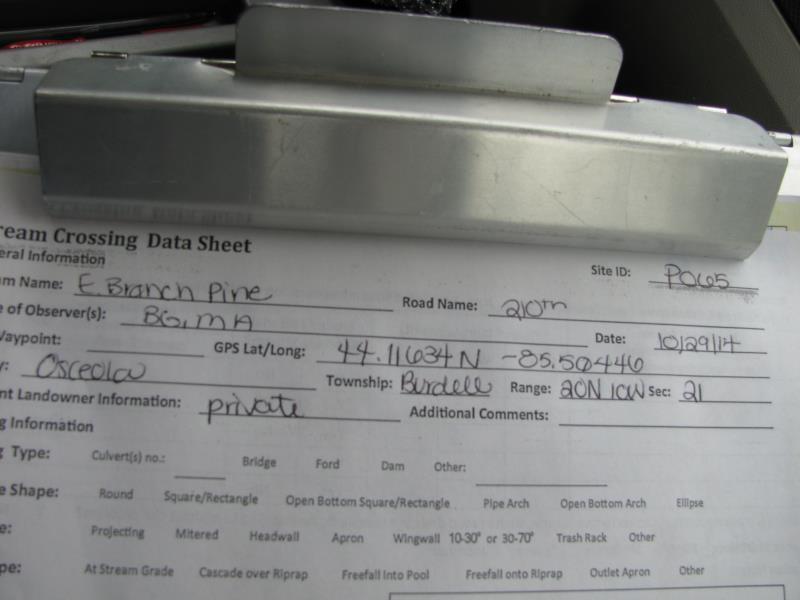 ream Crossing Data Sheet
eral Information
Site ID: P065
am Name: E. Branch Pine Road Name: 210th
e of Observer(s): BG, MA Date: 10/29/14
Waypoint: GPS Lat/Long: 44.11634 N -85.50446
y: Osceola Township: Burdell Range: 20N 10W Sec: 21
nt Landowner Information: private Additional Comments:
g Information
g Type: Culvert(s) no.: Bridge Ford Dam Other:
e Shape: Round Square/Rectangle Open Bottom Square/Rectangle Pipe Arch Open Bottom Arch Ellipse
e: Projecting Mitered Headwall Apron Wingwall 10-30° or 30-70° Trash Rack Other
pe: At Stream Grade Cascade over Riprap Freefall Into Pool Freefall onto Riprap Outlet Apron Other